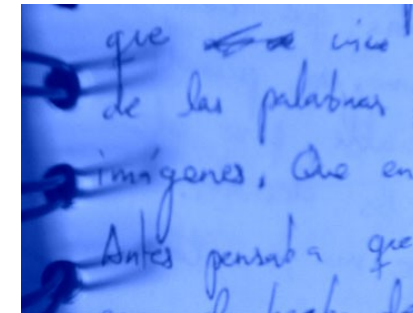 que
de las palabras
imágenes. Que en
Antes pensaba que